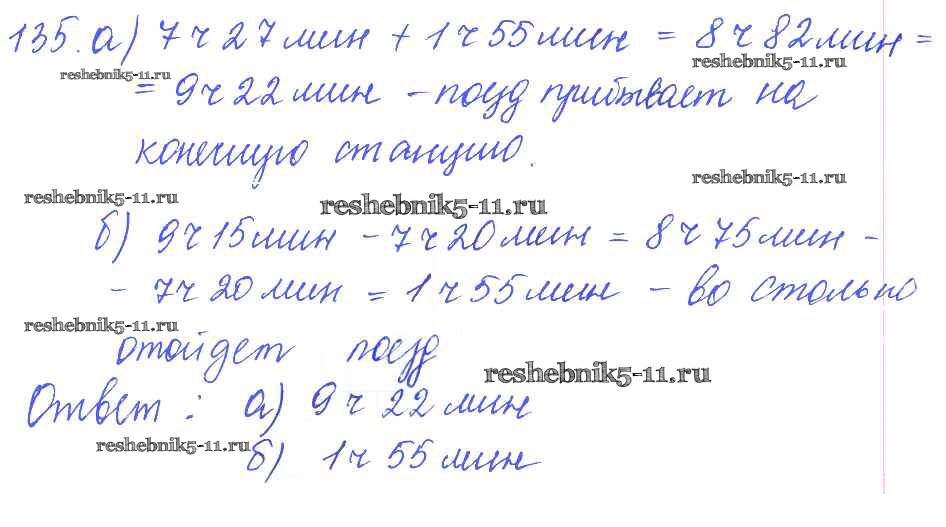 135. а) 7 ч 27 мин + 1 ч 55 мин = 8 ч 82 мин =
reshebnik5-11.ru
reshebnik5-11.ru
= 9 ч 22 мин - поезд прибывает на
конечную станцию.
reshebnik5-11.ru
reshebnik5-11.ru
reshebnik5-11.ru
б) 9 ч 15 мин - 7 ч 20 мин = 8 ч 75 мин -
- 7 ч 20 мин = 1 ч 55 мин - во столько
reshebnik5-11.ru
отойдет поезд
reshebnik5-11.ru
Ответ: а) 9 ч 22 мин
reshebnik5-11.ru
б) 1 ч 55 мин